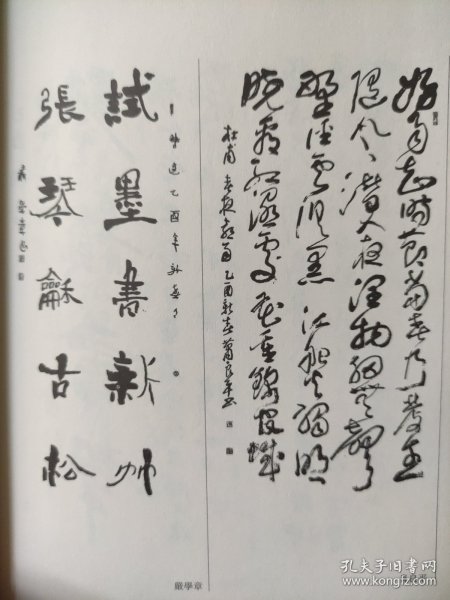 好雨知時節當春乃發生
隨風潛入夜潤物細無聲
野徑雲俱黑江船火獨明
曉看紅濕處花重錦官城
杜甫春夜喜雨乙酉新春
試墨書新竹
乙酉年新春
張琴龢古松
嚴學章
孔夫子旧书网
www.kongfz.com